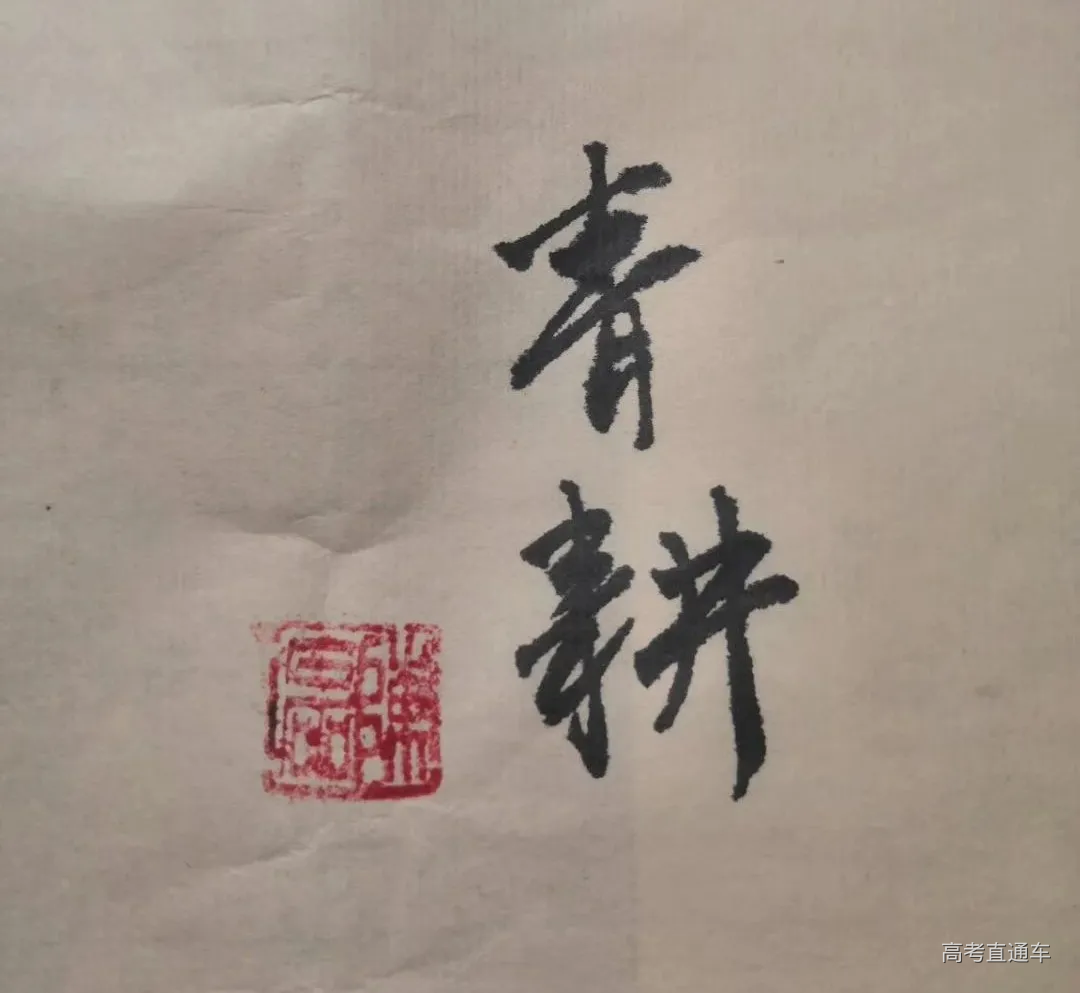 青
耕
高考直通车